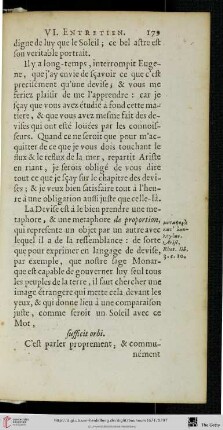 VI. ENTRETIEN. 179
digne de luy que le Soleil; ce bel astre est
son veritable portrait.
Il y a long-temps, interrompit Euge-
ne, que j'ay envie de sçavoir ce que c'est
precisément qu'une devise; & vous me
feriez plaisir de me l'apprendre: car je
sçay que vous avez étudié à fond cette ma-
tiere, & que vous avez mesme fait des de-
vises qui ont esté loüées par les connois-
seurs. Quand ce ne seroit que pour m'ac-
quitter de ce que je vous dois touchant le
flux & le reflux de la mer, repartit Ariste
en riant, je serois obligé de vous dire
tout ce que je sçay sur le chapitre des devi-
ses; & je veux bien satisfaire tout à l'heu-
re à une obligation aussi juste que celle-là.
La Devise est à le bien prendre une me-
taphore, & une metaphore de proportion,
qui represente un objet par un autre avec
lequel il a de la ressemblance: de sorte
que pour exprimer en langage de devise,
par exemple, que nostre sage Monar-
que est capable de gouverner luy seul tous
les peuples de la terre, il faut chercher une
image étrangere qui mette cela devant les
yeux, & qui donne lieu à une comparaison
juste, comme seroit un Soleil avec ce
Mot,
sufficit orbi.
C'est parler proprement, & commu-
nément